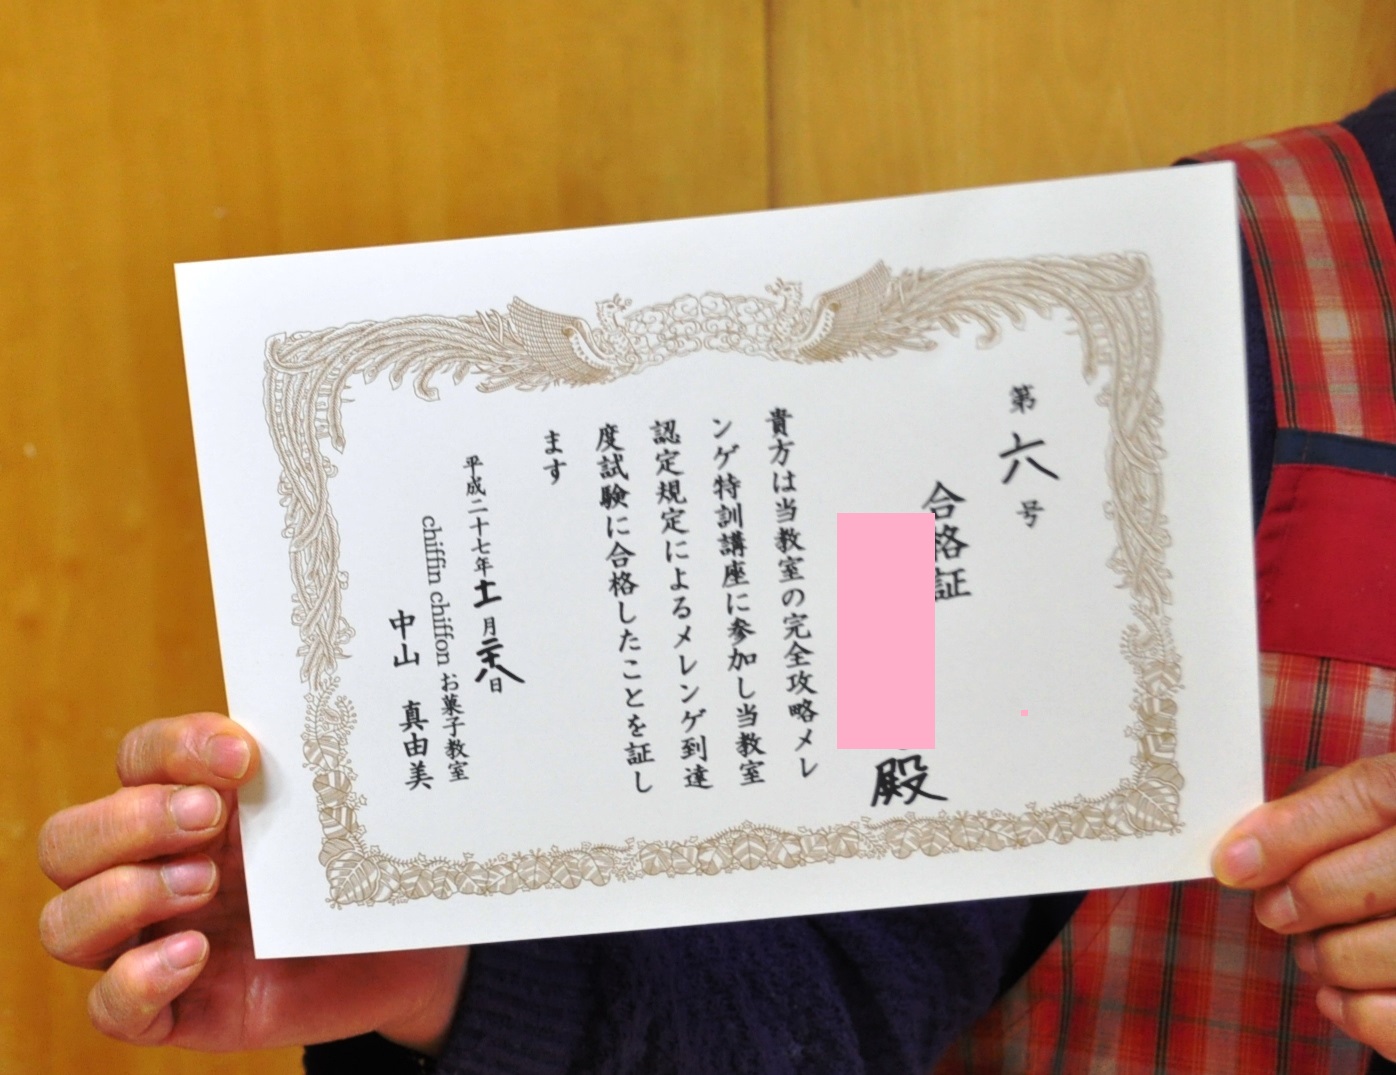 第六号
合格証
殿
貴方は当教室の完全攻略メレ
ンゲ特訓講座に参加し当教室
認定規定によるメレンゲ到達
度試験に合格したことを証し
ます
平成二十七年十一月二十八日
chiffin chiffon お菓子教室
中山 真由美